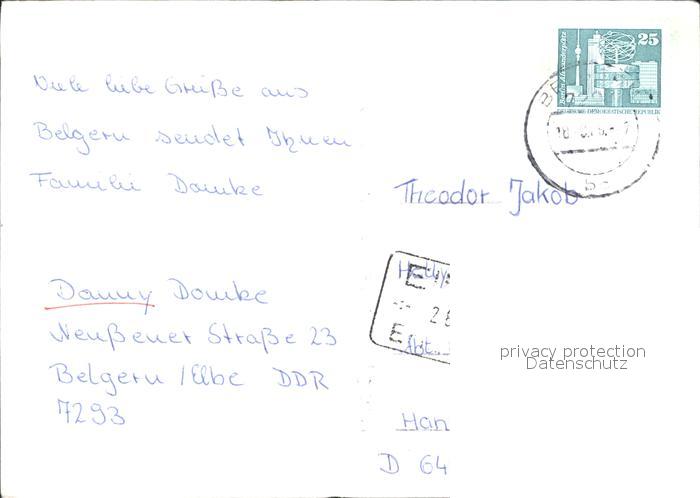 Viele liebe Grüße aus
Belgern sendet Ihnen
Familie Domke
Danny Domke
Neußener Straße 23
Belgern /Elbe DDR
7293
25
Berlin, Alexanderplatz
DEUTSCHE DEMOKRATISCHE REPUBLIK
Theodor Jakob
Abt.
Han
D 64
privacy protection
Datenschutz